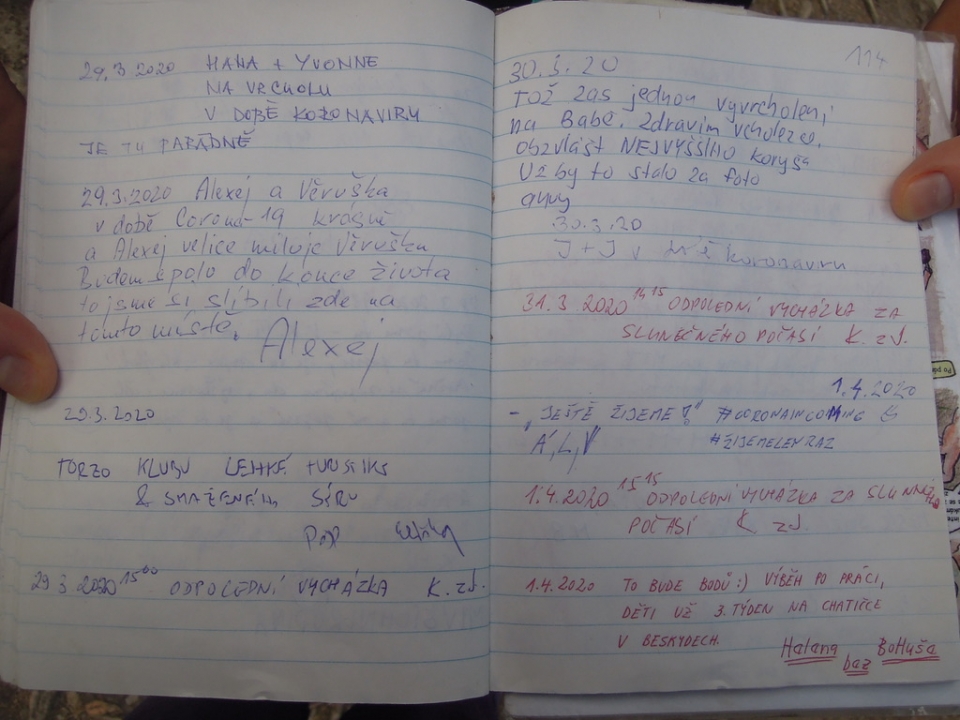 29.3.2020 HANA + YVONNE
NA VRCHOLU
V DOBĚ KORONAVIRU
JE TU PARÁDNĚ
29.3.2020 Alexej a Věruška
v době Corona-19 krásně
a Alexej velice miluje Věrušku
Budem spolo do konce života
to jsme si slíbili zde na
tomto místě.
Alexej
29.3.2020
TORZO KLUBU LEHKÉ
& SMAŽENÉHO SÝRU
29.3.2020 15⁰⁰ ODPOLEDNÍ VYCHÁZKA K. z J.
114
30.3.20
Tož zas jednou vyvrcholení
na Babě. Zdravím vcholezce.
obzvlášt NEJVYŠŠÍHO koryša
Už by to stálo za foto
30.3.20
J + J v koronaviru
31.3.2020 14¹⁵ ODPOLEDNÍ VYCHÁZKA ZA
SLUNEČNÉHO POČASÍ K. z J.
1.4.2020
- „JEŠTĚ ŽIJEME!" #CORONAINCOMING
Á, L, V #ŽIJEMELENRAZ
1.4.2020 15¹⁵ ODPOLEDNÍ VYCHÁZKA ZA
POČASÍ K z J.
1.4.2020 TO BUDE BODŮ :) VÝBĚH PO PRÁCI,
DĚTI UŽ 3. TÝDEN NA CHATIČCE
V BESKYDECH.
Halana baz BoHuša